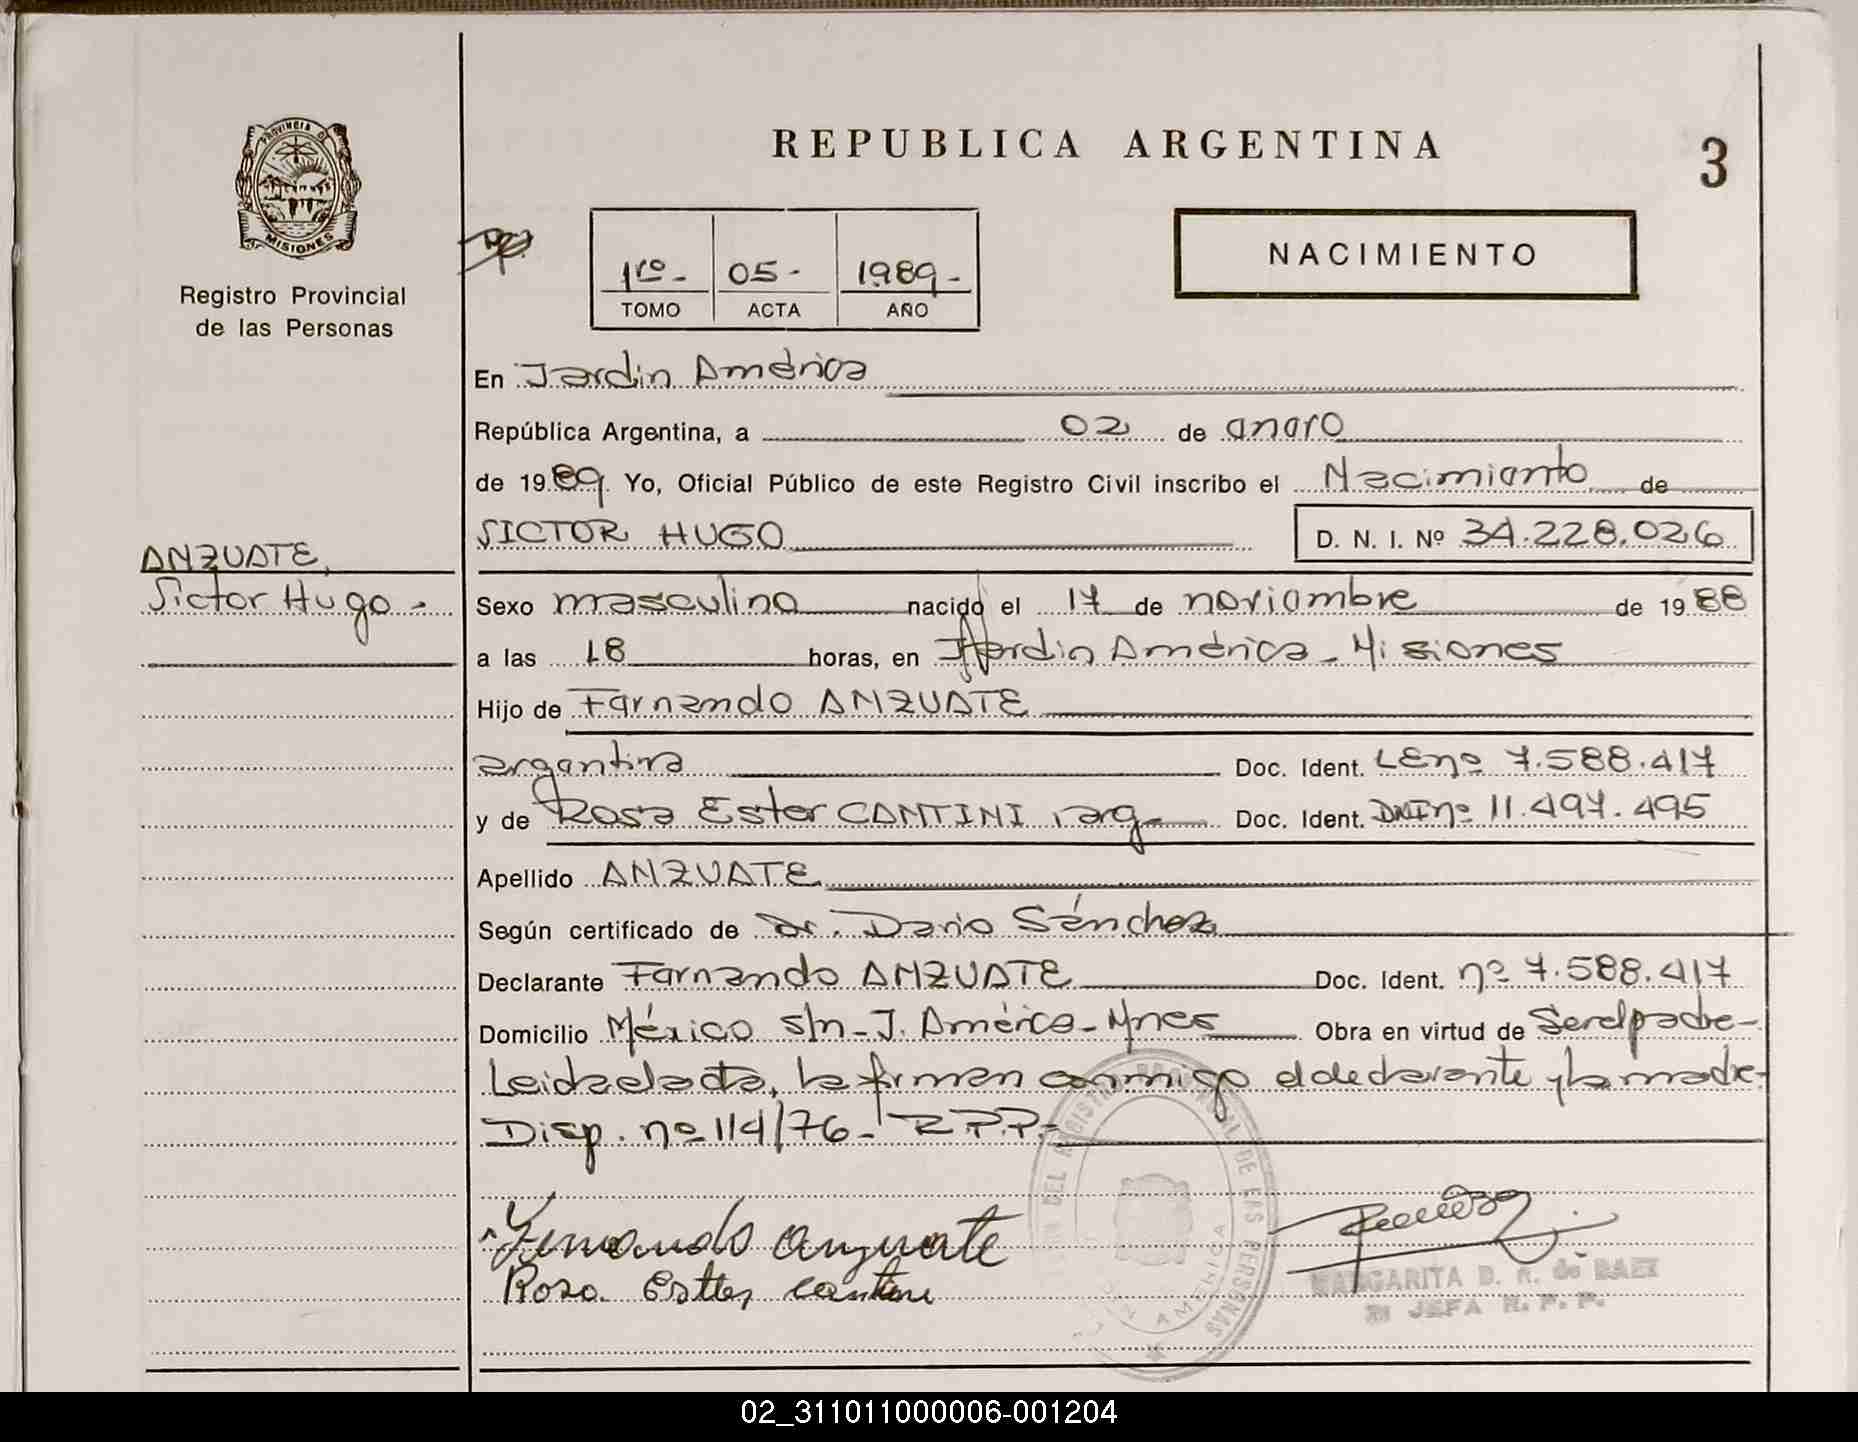 REPUBLICA ARGENTINA
3
PROVINCIA DE
MISIONES
Registro Provincial
de las Personas
1ro - 05 - 1989 -
TOMO ACTA AÑO
NACIMIENTO
En Jardin América
República Argentina, a 02 de enero
de 19 89 Yo, Oficial Público de este Registro Civil inscribo el Nacimiento de
SICTOR HUGO D. N. I. Nº 34.228.026
ANZUATE,
Sictor Hugo -
Sexo masculino nacido el 17 de noviembre de 19 88
a las 18 horas, en Jardin América - Misiones
Hijo de Fernando ANZUATE
argentino Doc. Ident. LE nº 7.588.417
y de Rosa Ester CANTINI, arg- Doc. Ident. DNI nº 11.497.495
Apellido ANZUATE
Según certificado de Dr. Dario Sánchez
Declarante Fernando ANZUATE Doc. Ident. nº 7.588.417
Domicilio México s/n - J. América - Mnes Obra en virtud de Ser el padre -
Leida el acta, la firman conmigo el declarante y la madre -
Disp. nº 114/76 - R.P.P. -
Fernando anzuate
Rosa Ester Cantini
MARGARITA D. R. de BAEZ
JEFA R. P. P.
DEL REGISTRO PROVINCIAL DE LAS PERSONAS
AMERICA
02_311011000006-001204